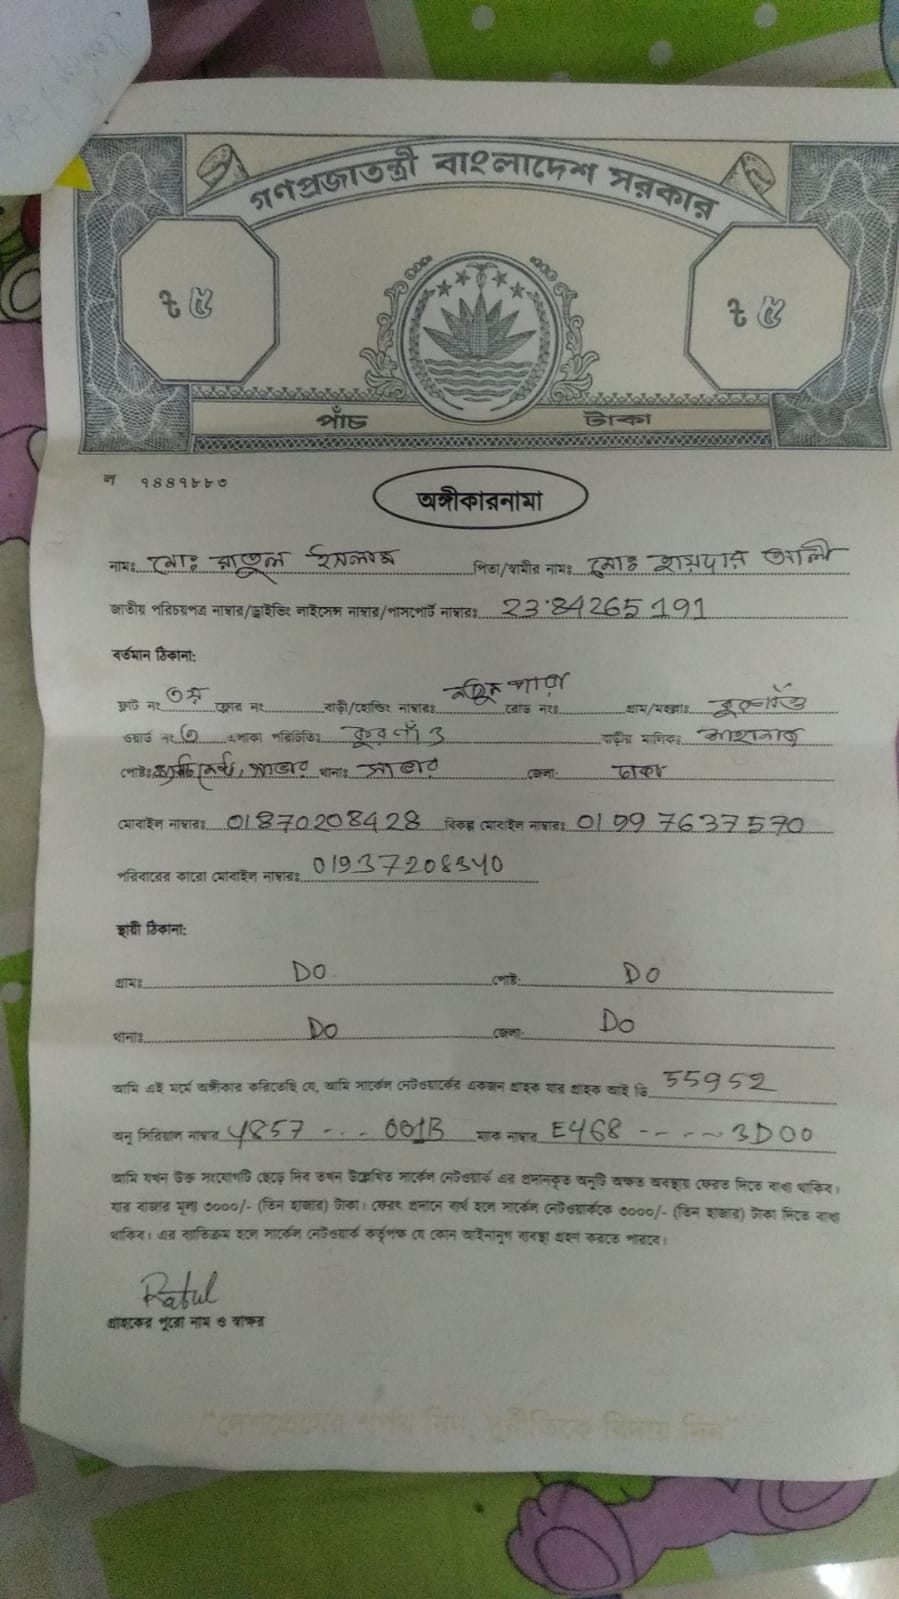 গণপ্রজাতন্ত্রী বাংলাদেশ সরকার
৳ ৫ ৳ ৫
পাঁচ টাকা
ল ৭৪৪৭৮৮৩
অঙ্গীকারনামা
নামঃ মোঃ রাতুল ইসলাম পিতা/স্বামীর নামঃ মোঃ হায়দার আলী
জাতীয় পরিচয়পত্র নাম্বার/ড্রাইভিং লাইসেন্স নাম্বার/পাসপোর্ট নাম্বারঃ 2384265191
বর্তমান ঠিকানা:
ফ্লাট নং ৩য় ফ্লোর নং বাড়ী/হোল্ডিং নাম্বারঃ নতুন পাড়া রোড নং গ্রাম/মহল্লাঃ
ওয়ার্ড নং ৩ এলাকা পরিচিতিঃ বাড়ীর মালিকঃ শাহানাজ
পোষ্টঃ সাভার থানাঃ সাভার জেলা: ঢাকা
মোবাইল নাম্বারঃ 01870208428 বিকল্প মোবাইল নাম্বারঃ 01997637570
পরিবারের কারো মোবাইল নাম্বারঃ 01937208340
স্থায়ী ঠিকানা:
গ্রামঃ DO পোষ্ট: DO
থানাঃ DO জেলা: DO
আমি এই মর্মে অঙ্গীকার করিতেছি যে, আমি সার্কেল নেটওয়ার্কের একজন গ্রাহক যার গ্রাহক আই ডি 55952
অনু সিরিয়াল নাম্বার 4857 --- 001B ম্যাক নাম্বার E468 ---- 3D00
আমি যখন উক্ত সংযোগটি ছেড়ে দিব তখন উল্লেখিত সার্কেল নেটওয়ার্ক এর প্রদানকৃত অনুটি অক্ষত অবস্থায় ফেরত দিতে বাধ্য থাকিব।
যার বাজার মূল্য ৩০০০/- (তিন হাজার) টাকা। ফেরৎ প্রদানে ব্যর্থ হলে সার্কেল নেটওয়ার্ককে ৩০০০/- (তিন হাজার) টাকা দিতে বাধ্য
থাকিব। এর ব্যতিক্রম হলে সার্কেল নেটওয়ার্ক কর্তৃপক্ষ যে কোন আইনানুগ ব্যবস্থা গ্রহণ করতে পারবে।
Ratul
গ্রাহকের পুরো নাম ও স্বাক্ষর
"দেশপ্রেমের শপথ নিন, দুর্নীতিকে বিদায় দিন"